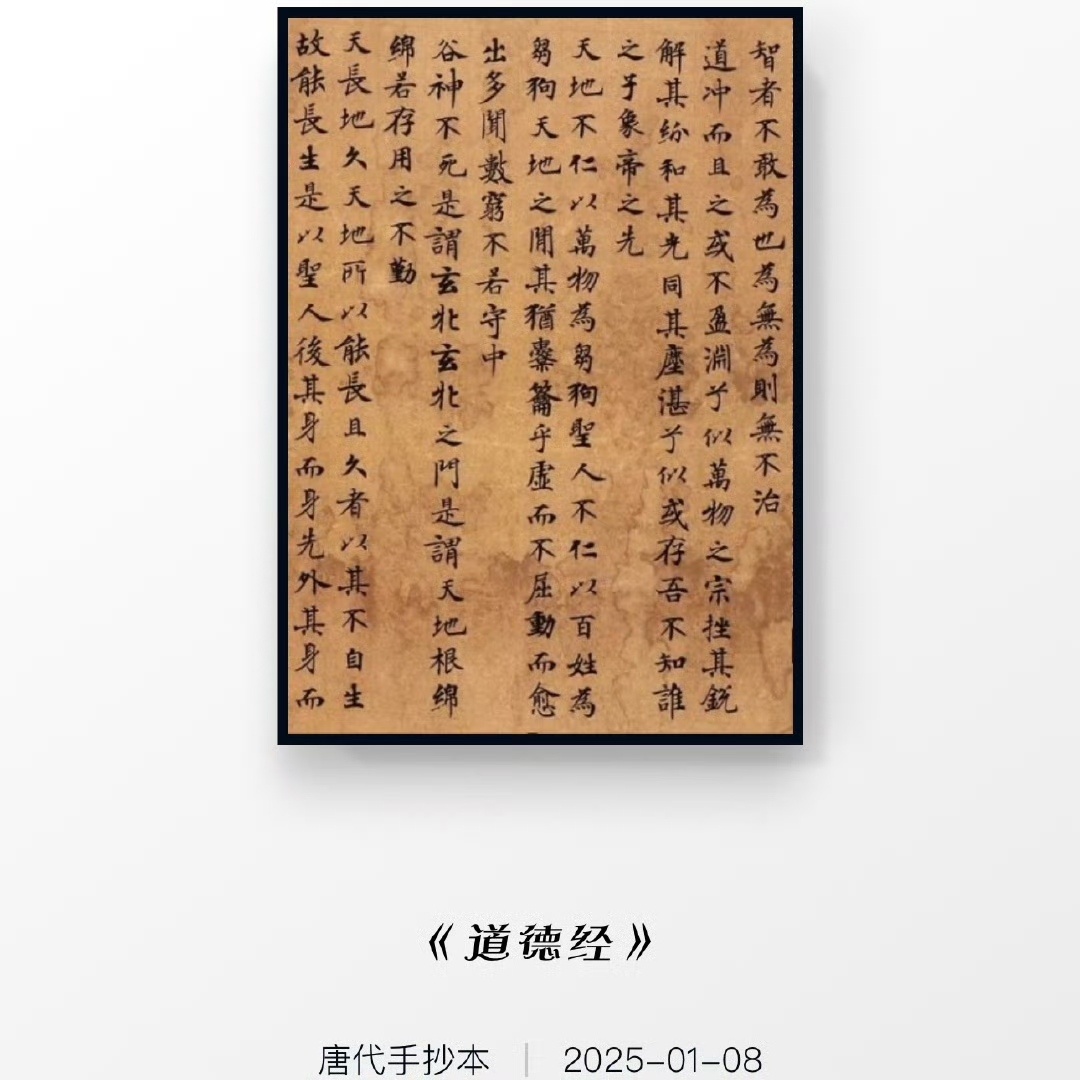 智者不敢為也為無為則無不治
道冲而且之或不盈淵乎似萬物之宗挫其銳
解其紛和其光同其塵湛乎似或存吾不知誰
之子象帝之先
天地不仁以萬物為芻狗聖人不仁以百姓為
芻狗天地之間其猶橐籥乎虛而不屈動而愈
出多聞數窮不若守中
谷神不死是謂玄牝玄牝之門是謂天地根綿
綿若存用之不勤
天長地久天地所以能長且久者以其不自生
故能長生是以聖人後其身而身先外其身而
《道德经》
唐代手抄本 | 2025-01-08